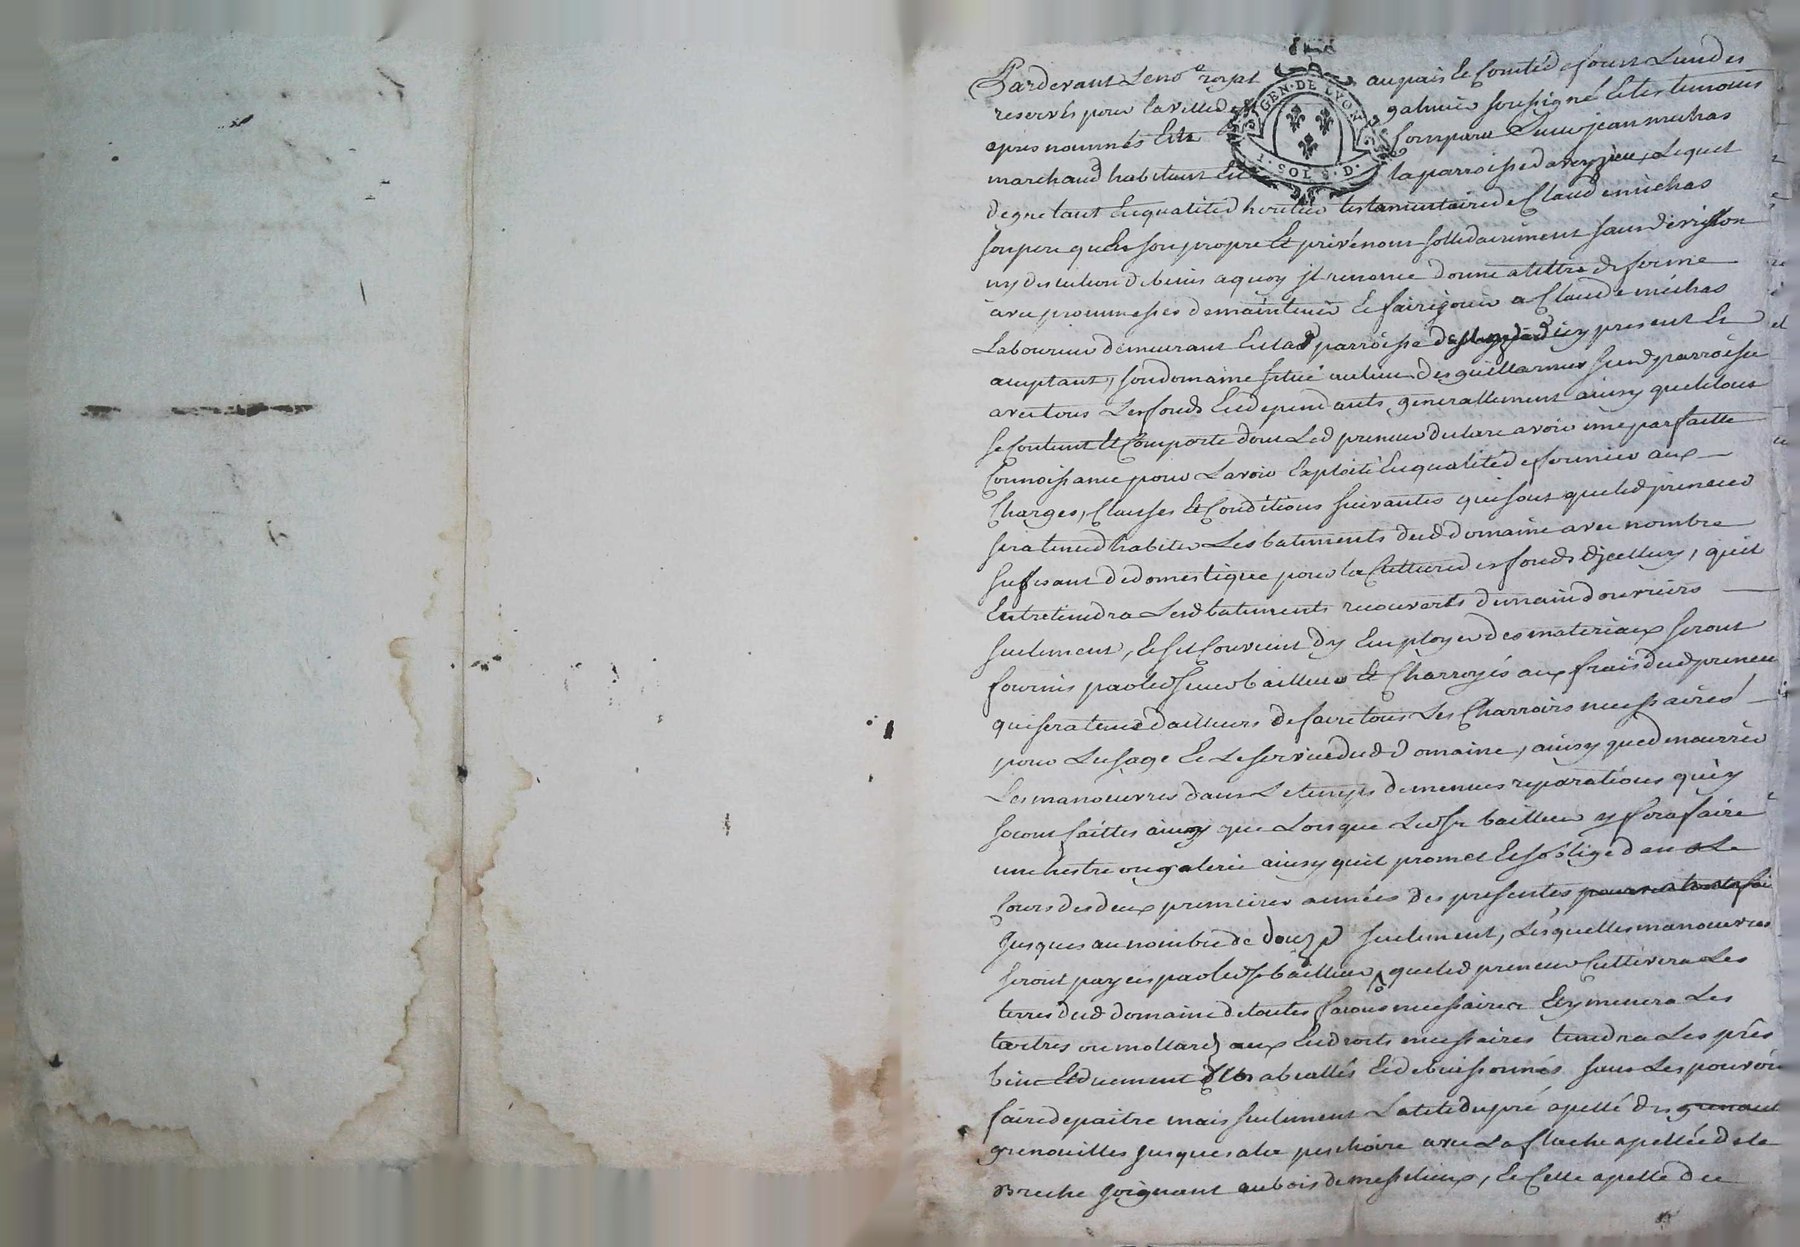 Pardevant Le no.e royal au païs et Comté de forest Lun des
reservés pour la ville de galmier soussigné Et les temoins
apres nommés Est Comparu Sieur jean michas
marchand habitant En la parroisse d'aveyzieu, Lequel
de gré tant En qualité d'heritier testamentaire de Claude michas
son pere qu'En son propre Et privé nom sollidairement sans divission
ny discution de biens a quoy jl renonce donne a tittre de ferme
avec prommesses de maintenir Et faire jouir a Claude michas
Laboureur demeurant En lad parroisse icy present Et
acceptant, son domaine situé au lieu des guillarmes susd parroisse
avec tous Les fonds En dependants, generallement ainsy que le tout
se Contient Et Comporte dont Led preneur declare avoir une parfaitte
Connoissance pour L'avoir Exploité En qualité de fermier aux
Charges, Clauses Et Conditions suivantes qui sont que led preneur
sera tenu d'habiter Les batiments dud domaine avec nombre
suffisant de domestique pour la Cutture des fonds d'jcelluy, qu'il
Entretiendra Lesd batiments recouverts de main d'ouvriers
seulement, Et s'il Convient d'y Employer des materiaux seront
fournis par led sieur bailleur Et Charroyés aux frais dud preneur
qui sera tenu d'ailleurs de faire tous Les Charroirs necessaires
pour L'usage Et Le service dud domaine, ainsy que de nourrir
Les manoeuvres dans Le temps de menues reparations qu'y
seront faittes ainsy que Lorsque Led sr bailleur y fera faire
une hestre ou galerie ainsy qu'il promet Et s'oblige dans Le
Cours des deux premieres années des presentes
jusques au nombre de douze seulement, Lesquelles manoeuvres
seront payées par led sr bailleur, que led preneur Cultivera Les
terres dud domaine de toutes facons necessaires Et y menera Les
tertres ou mollards aux Endroits necessaires tiendra Les prés
bien Et duement abeallés Et debuissonnés sans Les pouvoir
faire depaitre mais seulement La tete du pré apellé des
grenouilles jusques a la peschoire avec La flache apellée de la
Breche joignant au bois de messilieux, Et Celle apellé de